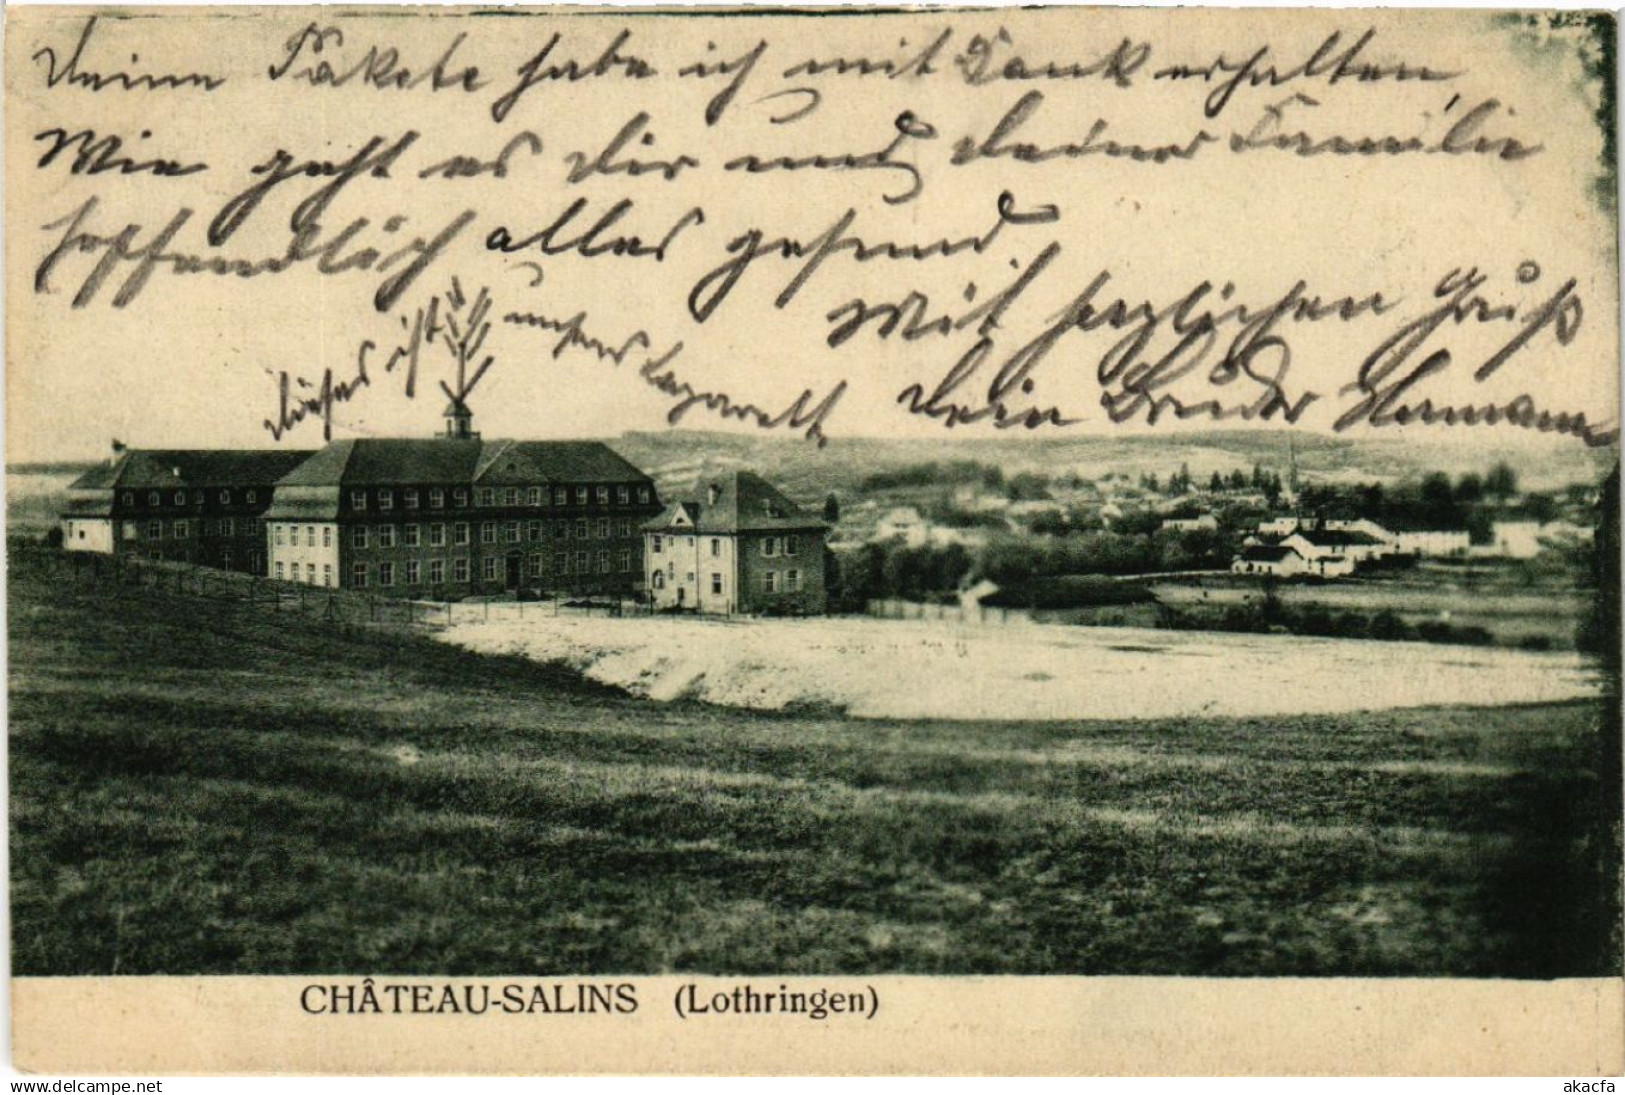 Deine Päkete habe ich mit Dank erhalten,
Wie geht es dir und deiner Familie
hoffendlich alles gesund.
Mit herzlichen Gruß
Dein Bruder Hermann
dieses ist unser Lazarett
CHÂTEAU-SALINS (Lothringen)
www.delcampe.net
akacfa